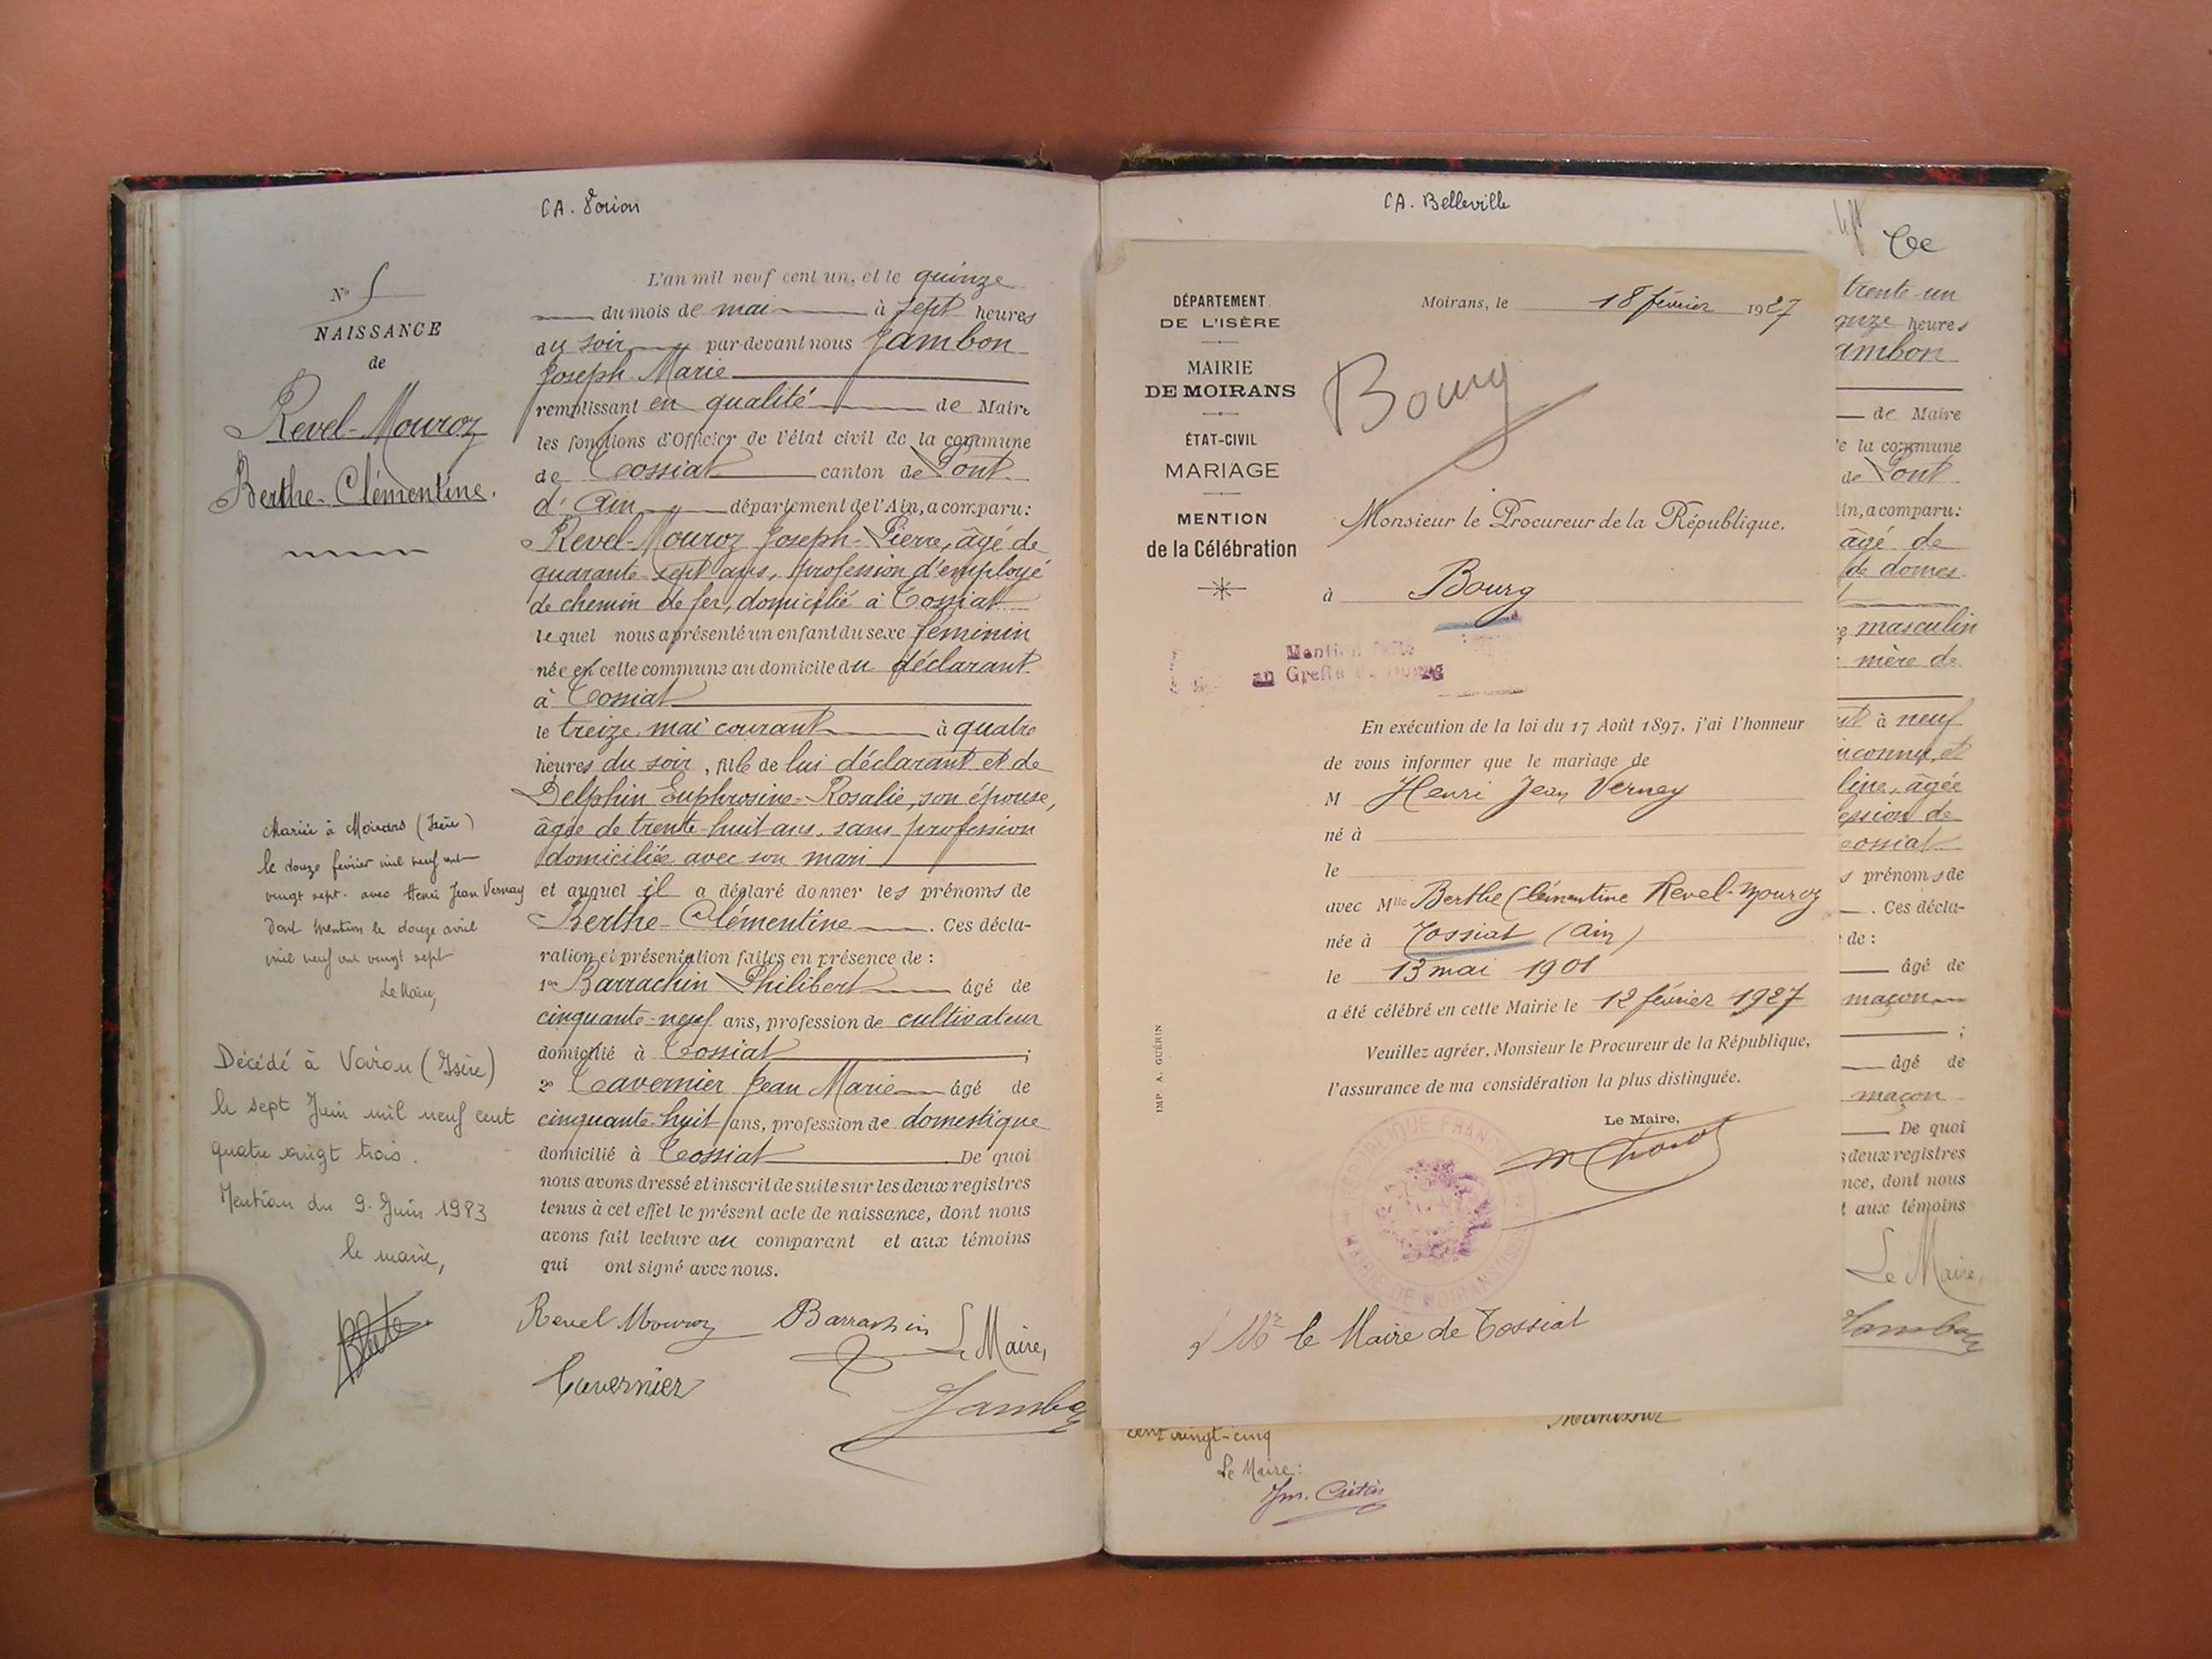 CA. Voiron
N° 5
NAISSANCE
de
Revel-Mouroz
Berthe-Clémentine.
Mariée à Moirans (Isère)
le douze février mil neuf cent
vingt sept. avec Henri Jean Vernay
dont mention le douze avril
mil neuf cent vingt sept
Le Maire,
Décédé à Voiron (Isère)
le sept Juin mil neuf cent
quatre vingt trois.
Mention du 9 Juin 1983
le maire,
L'an mil neuf cent un, et le quinze
du mois de mai à sept heures
du soir par-devant nous Jambon
Joseph Marie
remplissant en qualité de Maire
les fonctions d'Officier de l'état civil de la commune
de Tossiat canton de Pont
d'Ain département de l'Ain, a comparu:
Revel-Mouroz Joseph-Pierre, âgé de
quarante-sept ans, profession d'employé
de chemin de fer, domicilié à Tossiat
lequel nous a présenté un enfant du sexe féminin
née en cette commune au domicile du déclarant
à Tossiat
le treize mai courant à quatre
heures du soir, fille de lui déclarant et de
Delphin Euphrosine-Rosalie, son épouse,
âgée de trente-huit ans, sans profession
domiciliée avec son mari
et auquel il a déclaré donner les prénoms de
Berthe-Clémentine. Ces décla-
ration et présentation faites en présence de :
1er Barrachin Philibert âgé de
cinquante-neuf ans, profession de cultivateur
domicilié à Tossiat ;
2e Tavernier Jean Marie âgé de
cinquante-huit ans, profession de domestique
domicilié à Tossiat De quoi
nous avons dressé et inscrit de suite sur les deux registres
tenus à cet effet le présent acte de naissance, dont nous
avons fait lecture au comparant et aux témoins
qui ont signé avec nous.
Revel Mouroz Barrachin Le Maire,
Tavernier Jambon
CA. Belleville
DÉPARTEMENT
DE L'ISÈRE
MAIRIE
DE MOIRANS
ÉTAT-CIVIL
MARIAGE
MENTION
de la Célébration
IMP. A. GUÉRIN
Moirans, le 18 février 1927
Bourg
Monsieur le Procureur de la République.
à Bourg
Mention faite
au Greffe de Bourg
En exécution de la loi du 17 Août 1897, j'ai l'honneur
de vous informer que le mariage de
M Henri Jean Verney
né à
le
avec Mlle Berthe Clémentine Revel-Mouroz
née à Tossiat (Ain)
le 13 mai 1901
a été célébré en cette Mairie le 12 février 1927
Veuillez agréer, Monsieur le Procureur de la République,
l'assurance de ma considération la plus distinguée.
Le Maire,
RÉPUBLIQUE FRANÇAISE
MAIRIE DE MOIRANS
Mr le Maire de Tossiat
cent vingt-cinq
Le Maire:
trente-un
onze heures
ambon
de Maire
e la commune
de Pont
Ain, a comparu:
âgé de
de domes
masculin
mère de
à neuf
inconnu, et
line, âgée
ession de
ossiat
s prénoms de
. Ces décla-
de :
âgé de
maçon
;
âgé de
maçon
De quoi
s deux registres
nce, dont nous
t aux témoins
Le Maire,
Jambon